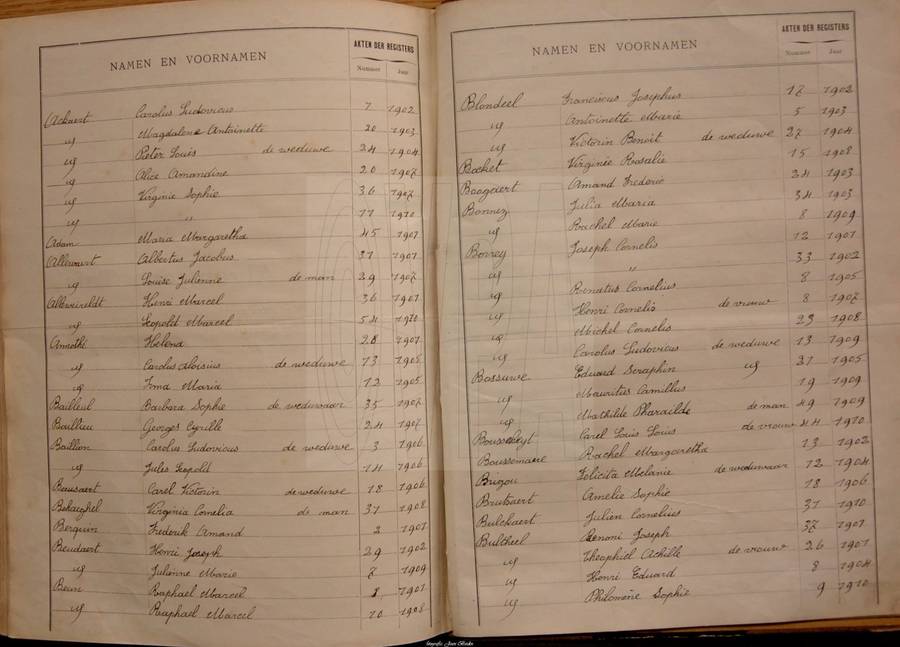 NAMEN EN VOORNAMEN AKTEN DER REGISTERS
Nummer Jaar
Ackaert Carolus Ludovicus 7 1902
id Magdalena Antoinette 20 1903
id Pieter Louis de weduwe 24 1904
id Alice Amandine 20 1907
id Virginie Sophie 36 1907
id " 11 1910
Adam Maria Margaretha 45 1901
Allewaert Albertus Jacobus 31 1901
id Louise Julienne de man 29 1907
Allewereldt Henri Marcel 36 1901
id Leopold Marcel 54 1910
Helena 28 1901
id Carolus Aloisius de weduwe 13 1905
id Irma Maria 12 1905
Bailleul Barbara Sophie de weduwaar 35 1907
Baillieu Georges Cyrille 24 1907
Baillon Carolus Ludovicus de weduwe 3 1906
id Jules Leopold 14 1906
Beausaert Carel Victorin de weduwe 18 1906
Behaeghel Virginia Cornelia de man 31 1908
Berquin Frederik Amand 2 1901
Beudaert Henri Joseph 29 1902
id Julienne Marie 7 1909
Beun Raphael Marcel 1 1901
id Raphael Marcel 10 1908
NAMEN EN VOORNAMEN AKTEN DER REGISTERS
Nummer Jaar
Blondeel Franciscus Josephus 17 1902
id Antoinette Marie 5 1903
id Victorin Benoit de weduwe 27 1904
Bocket Virginie Rosalie 15 1908
Boogaert Amand Frederic 34 1903
Bonnez Julia Maria 34 1903
id Rachel Marie 8 1909
Bonrey Joseph Cornelis 12 1901
id " 33 1902
id Renatus Cornelius 8 1905
id Henri Cornelis de vrouw 8 1907
id Michel Cornelis 23 1908
id Carolus Ludovicus de weduwe 13 1909
Bossuwe Eduard Seraphin id 31 1905
id Mauritus Camillus 19 1909
id Mathilde Pharailde de man 49 1909
Carel Louis Louis de vrouw 44 1910
Boussemaere Rachel Margaretha 13 1902
Felicita Melanie de weduwaar 12 1904
Brutsaert Amelie Sophie 18 1906
Bulckaert Julien Cornelius 31 1910
Bultheel Benoni Joseph 37 1901
id Theophiel Achille de vrouw 26 1901
id Henri Eduard 8 1904
id Philomène Sophie 9 1910